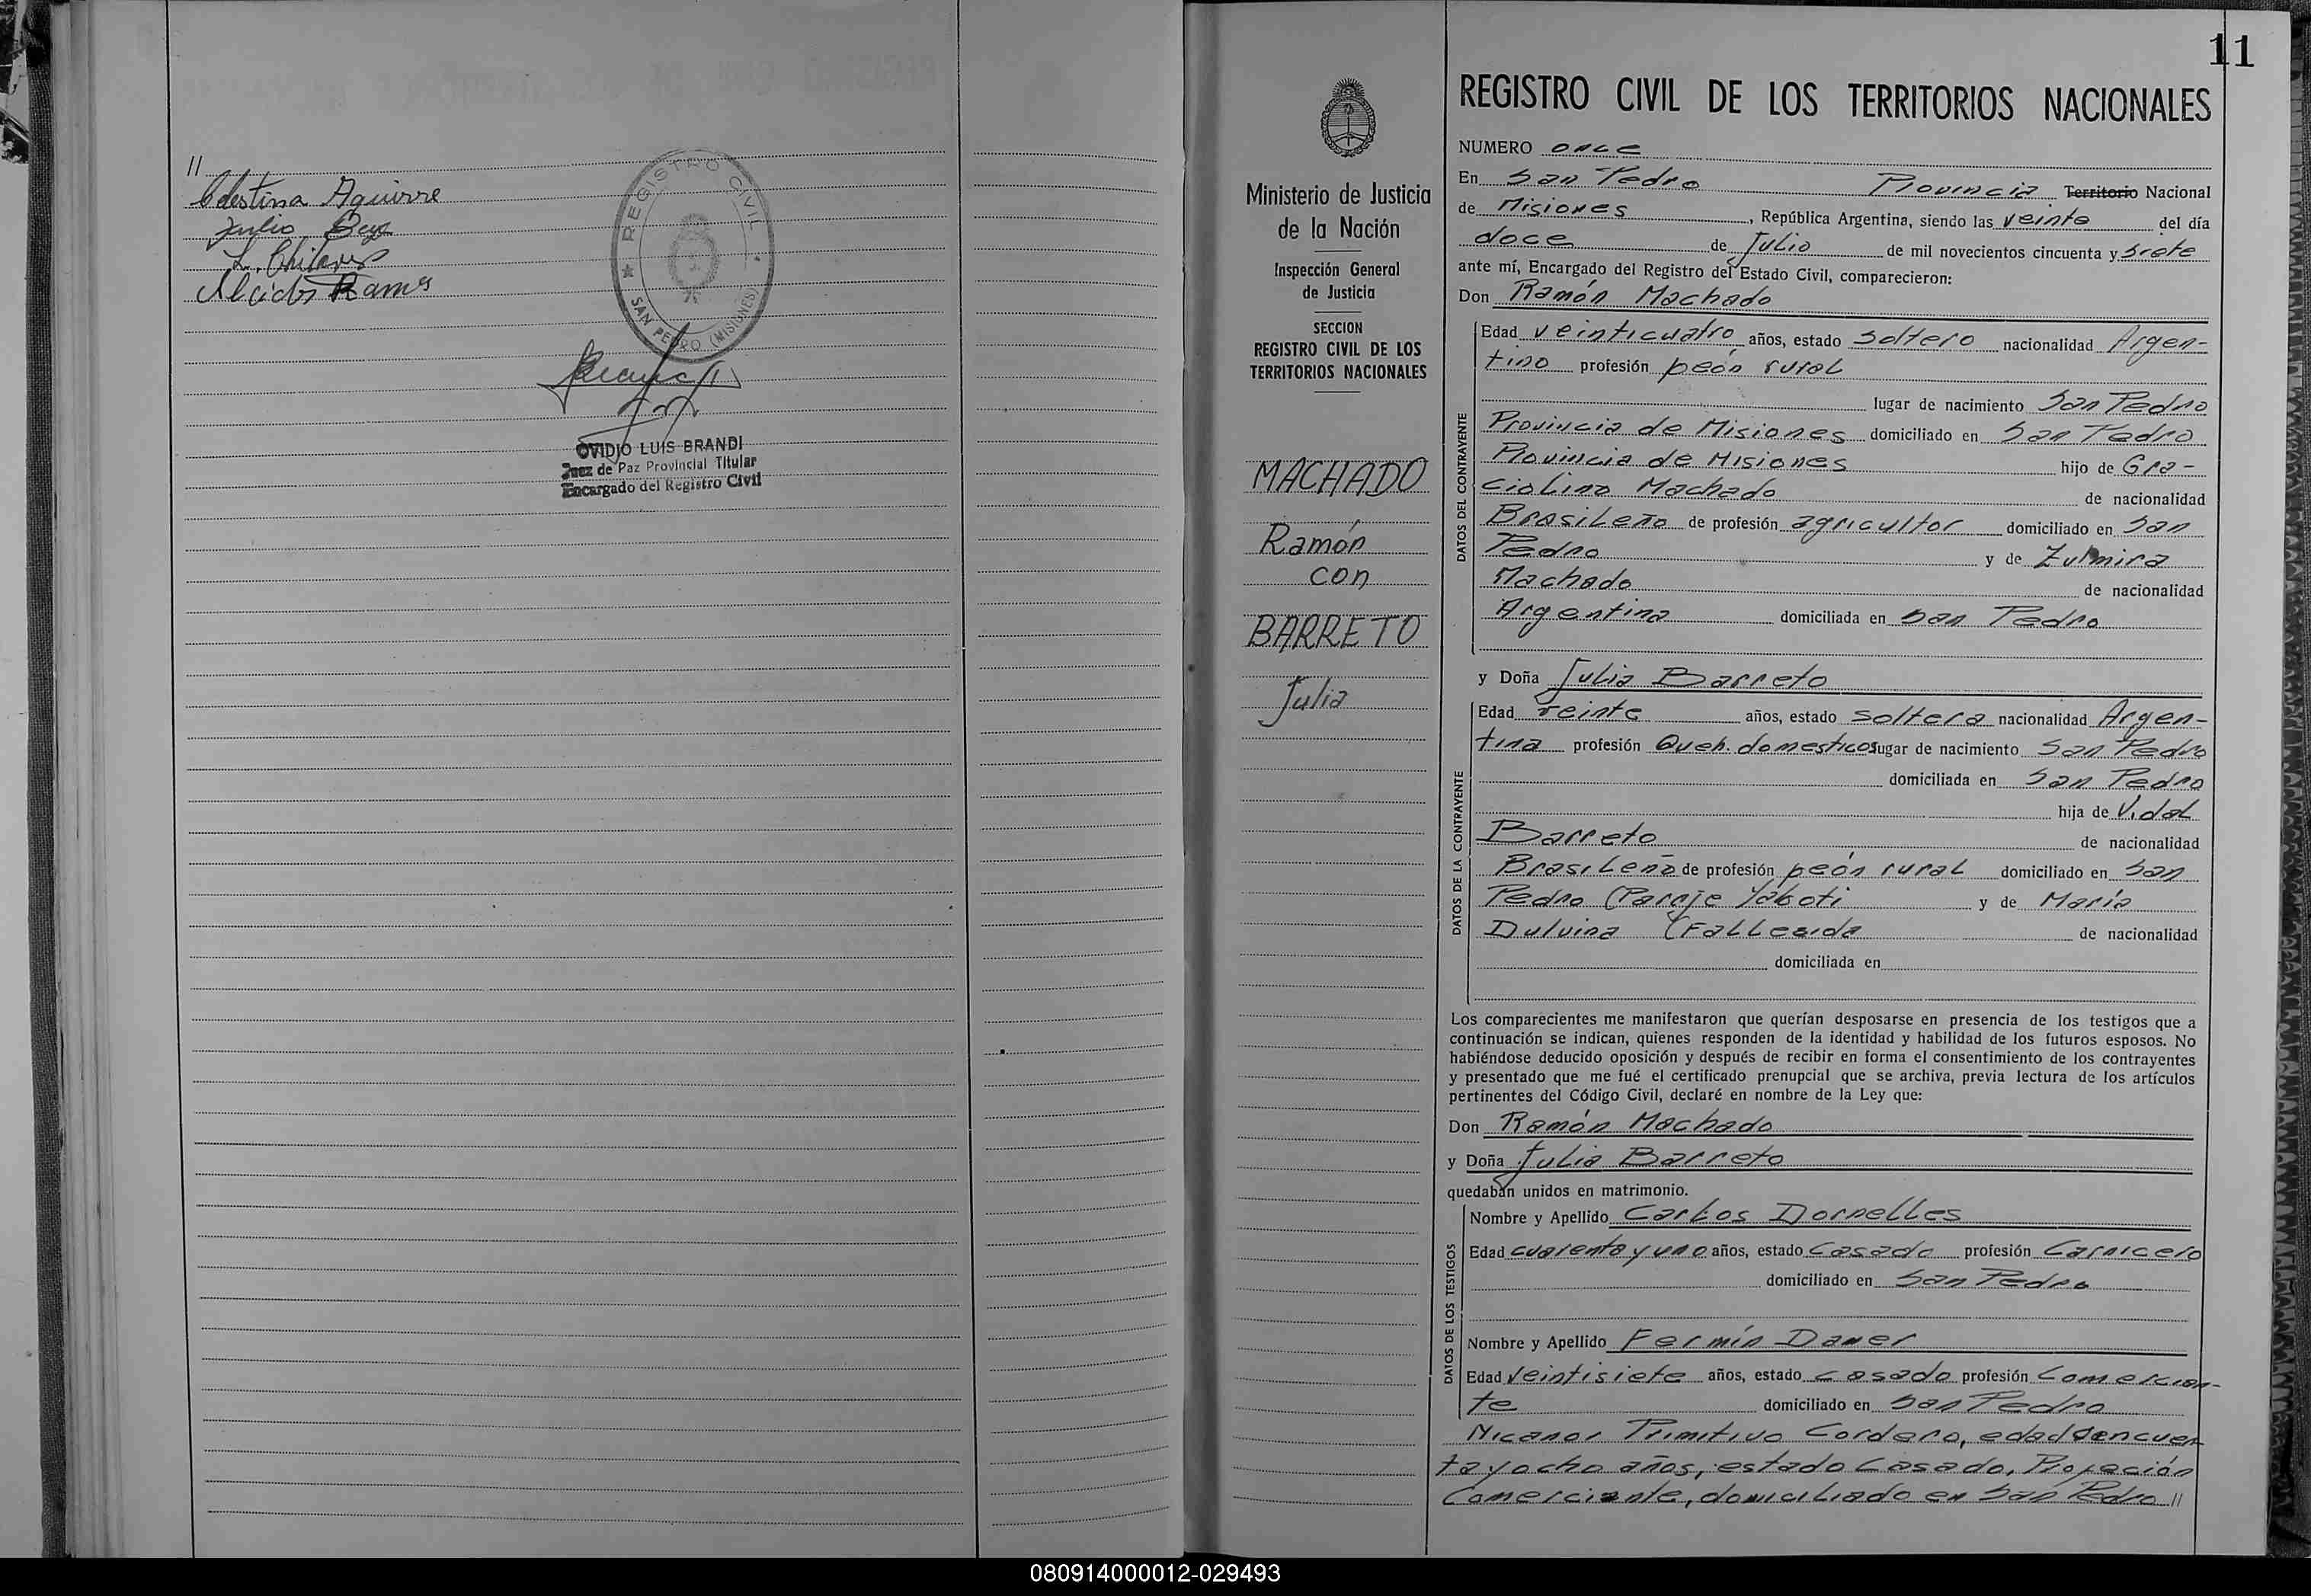 //
Celestina Aguirre
Julio
Alcides Ramos
★ REGISTRO CIVIL ★
SAN PEDRO (MISIONES)
OVIDIO LUIS BRANDI
Juez de Paz Provincial Titular
Encargado del Registro Civil
11
Ministerio de Justicia
de la Nación
Inspección General
de Justicia
SECCION
REGISTRO CIVIL DE LOS
TERRITORIOS NACIONALES
MACHADO
Ramón
con
BARRETO
Julia
REGISTRO CIVIL DE LOS TERRITORIOS NACIONALES
NUMERO once
En San Pedro Provincia Territorio Nacional
de Misiones, República Argentina, siendo las veinte del día
doce de Julio de mil novecientos cincuenta y siete
ante mí, Encargado del Registro del Estado Civil, comparecieron:
Don Ramón Machado
DATOS DEL CONTRAYENTE
Edad veinticuatro años, estado soltero nacionalidad Argen-
tino profesión peón rural
lugar de nacimiento San Pedro
Provincia de Misiones domiciliado en San Pedro
Provincia de Misiones hijo de Gra-
ciolino Machado de nacionalidad
Brasileño de profesión agricultor domiciliado en San
Pedro y de Zulmira
Machado de nacionalidad
Argentina domiciliada en San Pedro
y Doña Julia Barreto
DATOS DE LA CONTRAYENTE
Edad veinte años, estado soltera nacionalidad Argen-
tina profesión Queh. domesticos lugar de nacimiento San Pedro
domiciliada en San Pedro
hija de Vidal
Barreto de nacionalidad
Brasileño de profesión peón rural domiciliado en San
Pedro (Paraje Yaboti y de María
Dulvina (Fallecida de nacionalidad
domiciliada en
Los comparecientes me manifestaron que querían desposarse en presencia de los testigos que a
continuación se indican, quienes responden de la identidad y habilidad de los futuros esposos. No
habiéndose deducido oposición y después de recibir en forma el consentimiento de los contrayentes
y presentado que me fué el certificado prenupcial que se archiva, previa lectura de los artículos
pertinentes del Código Civil, declaré en nombre de la Ley que:
Don Ramón Machado
y Doña Julia Barreto
quedaban unidos en matrimonio.
DATOS DE LOS TESTIGOS
Nombre y Apellido Carlos Dornelles
Edad cuarenta y uno años, estado Casado profesión Carnicero
domiciliado en San Pedro
Nombre y Apellido Fermín Damer
Edad Veintisiete años, estado casado profesión Comercian-
te domiciliado en San Pedro
Nicanor Primitivo Cordero, edad cincuen
ta y ocho años, estado Casado, Profeción
Comerciante, domiciliado en San Pedro //
080914000012-029493